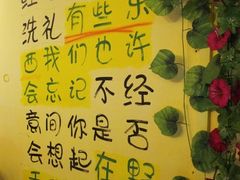 有些东
洗礼
西我们也许
会忘记不经
意间你是否
会想起在野